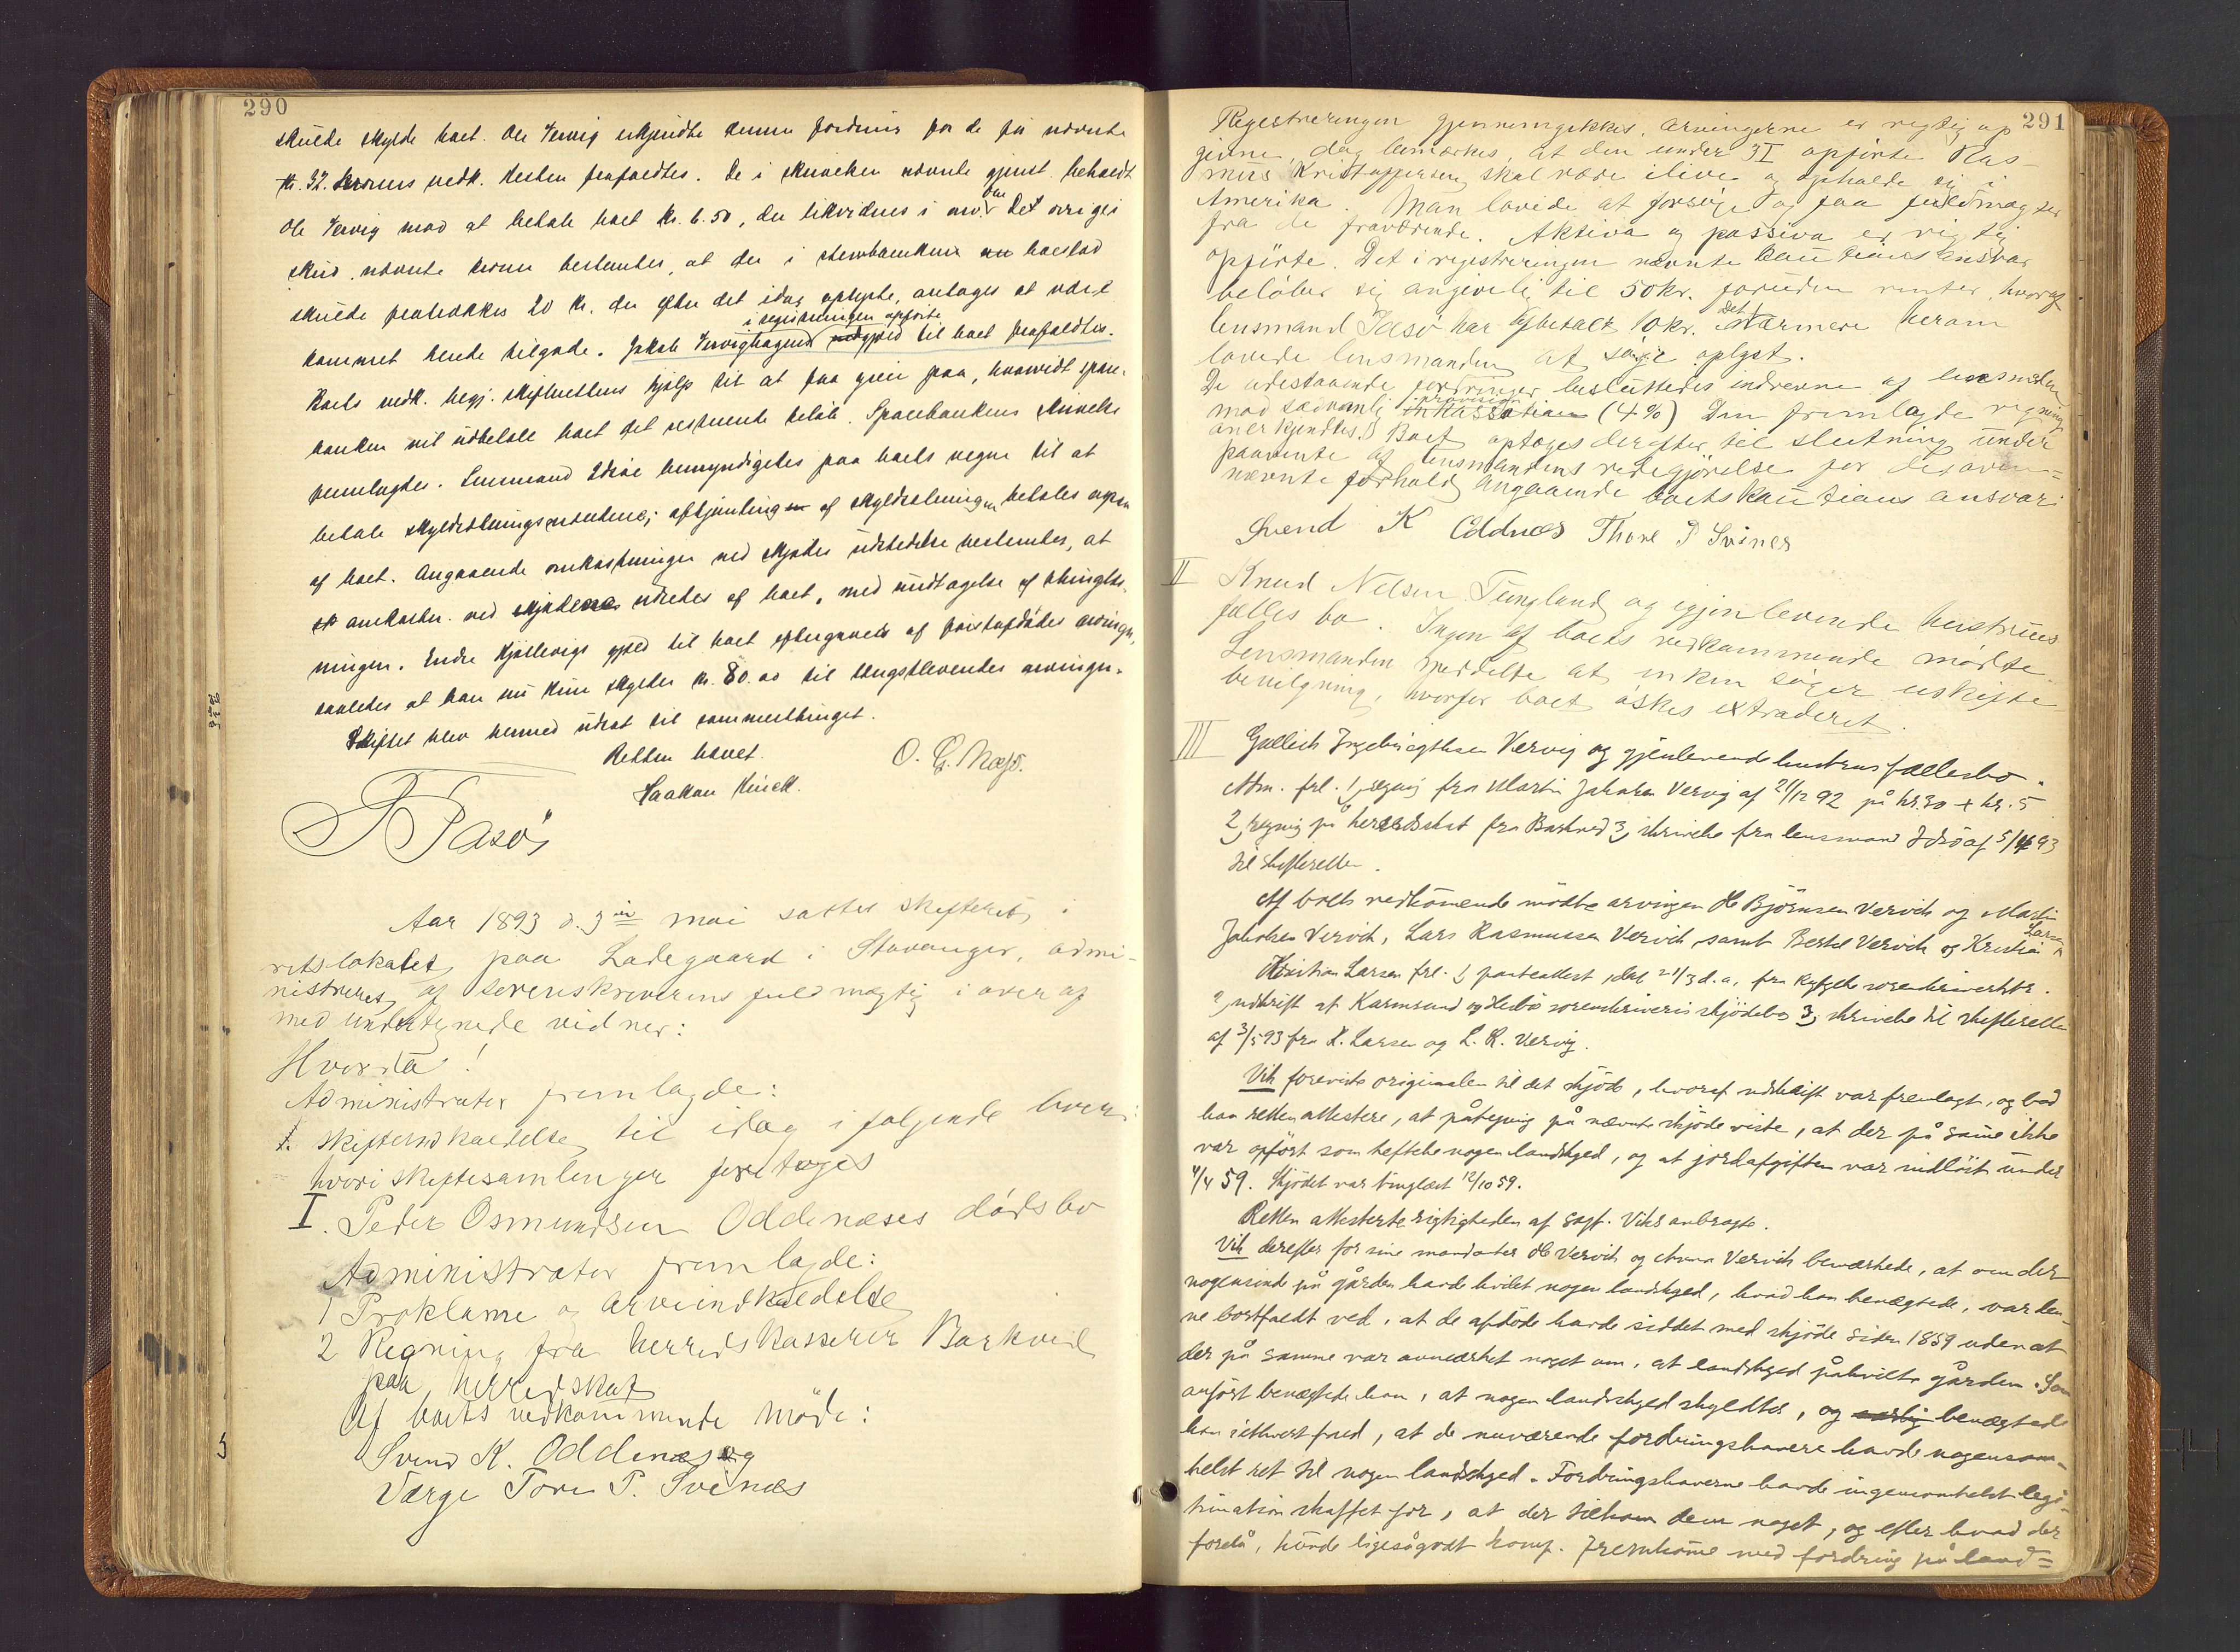 290
skulde skylde boet. Ole Vervig erkjendte denne fordring paa de før nævnte
kr. 32. vedk. hesten frafaldtes. De i skrivelsen nævnte gjenst. beholdt
Ole Vervig mod at betale boet kr. 6.50, der likvideres i arv. Det øvrige i
skriv. nævnte bestemtes, at der i
skulde fratrækkes 20 kr. der efter det idag oplyste, antages at være
i registreringen opførte
kommet hende tilgode. Jakob gjæld til boet frafaldtes.
Boets vedk. begj. skifterettens hjælp til at faa greie paa, hvorvidt spare-
banken vil udbetale boet det resterende beløb. Sparebankens skrivelse
fremlagdes. Lensmand Idsöe bemyndigedes paa boets vegne til at
betale af skyldsetningen betales ogsaa
af boet. Angaaende omkostninger ved skjøders udstedelse bestemtes, at
omkostn. ved skjøderne udredes af boet, med undtagelse af thinglæs-
ningen. Endre gjæld til boet eftergaves af førstafdødes arvinger,
saaledes at han nu kun skylder kr. 80.00 til længstlevendes arvinger.
Skiftet blev hermed udsat til sommerthinget.
Retten hævet.
O. G. Næss.
Haakon Hinck.
Aar 1893 d. 3die mai sattes skifteret i
retslokalet paa Ladegaard i Stavanger, admi-
nistreret af sorenskriverens fuldmægtig i overvær af
med undertegnede vidner:
Hvorda!
Administrator fremlagde:
1. skifteindkaldelse til idag i følgende boer:
hvori skiftesamlinger foretoges
I. Peder Osmundsen Oddenæses dødsbo
Administrator fremlagde:
1 Proklama og arveindkaldelse
2 Regning fra herredskasserer Barkved
paa herredskat
Af boets vedkommende mødte:
Svend K. Oddenæs og
Værge Tore P. Svinæs
291
Registreringen gjennemgikkes. Arvingerne er rigtig op
givne, dog bemærkes, at den under 3I opførte Ras-
mus Kristoffersen skal være ilive og opholde sig i
Amerika. Man lovede at forsøge og faa fuldmagter
fra de fraværende. Aktiva og passiva er rigtig
opførte. Det i registreringen nævnte kautionsansvar
beløber sig angivelig til 50 kr. foruden renter, hvoraf
lensmand Idsö har betalt 10 kr. Det nærmere herom
lovede lensmanden at søge oplyst.
De udestaaende fordringer besluttedes inddrevne af lensmanden
mod sædvanlig provision (4%) Den fremlagde regning
anerkjendtes. Boet optoges derefter til slutning under
paavente af lensmandens redegjörelse for desoven-
nævnte forhold angaaende boets kautions ansvar.
Svend K Oddnæs Thore P Svines
II Knud Nilsen Tungland og gjenlevende hustrues
fælles bo. Ingen af boets vedkommende mødte.
Lensmanden meddelte at enken søger uskifte
bevilgning, hvorfor boet øskes extraderet.
III Gullich Ingebrigthsen Vervig og gjenlevende hustrus fællesbo.
Adm. frl. 1, regning fra Martin Jakobsen Vervig af 21/12 92 på kr. 30 + kr. 5
2, regning på herredsskat fra Barkved 3, skrivelse fra lensmand Idsö af 5/4 93
til skifteretten.
Af boets vedkommende mødte arvingen Ole Björnsen Vervik og Martin
Jakobsen Vervik, Lars Rasmussen Vervik samt Bertel Vervik og Kristian Larsen
Kristian Larsen frl. 1, panteattest, dat 21/3 d.a. fra Ryfylke sorenskriverktr.
2, udskrift af Karmsund og Hesbø sorenskriveris skjødebog 3, skrivelse til skifteretten
af 3/5 93 fra K. Larsen og L. R. Vervig.
Vik foreviste originalen til det skjöde, hvoraf udskrift var fremlagt, og bad
han retten attestere, at påtegning på nævnte skjøde viste, at der på samme ikke
var opført som heftelse nogen landskyld, og at jordafgiften var indløst under
4/4 59. Skjødet var tinglæst 12/10 59.
Retten attesterte rigtigheden af sagf. Viks anbragte.
Vik derefter for sine mandanter Ole Vervik og Anna Vervik bemærkede, at om der
nogensinde på gården havde hvilet nogen landskyld, hvad han benægtede, var den-
ne bortfaldt ved, at de afdøde havde siddet med skjøde siden 1859 uden at
der på samme var anmærket noget om, at landskyld påhvilte gården. Som
anført benægtede han, at nogen landskyld skyldtes, og benægtede
han i ethvert fald, at de nuværende fordringshavere havde nogensom-
helst ret til nogen landskyld. Fordringshaverne havde ingensomhelst legi-
timation skaffet for, at der tilkom dem noget, og efter hvad der
forelå, kunde ligesågodt komp. fremkomme med fordring på land=